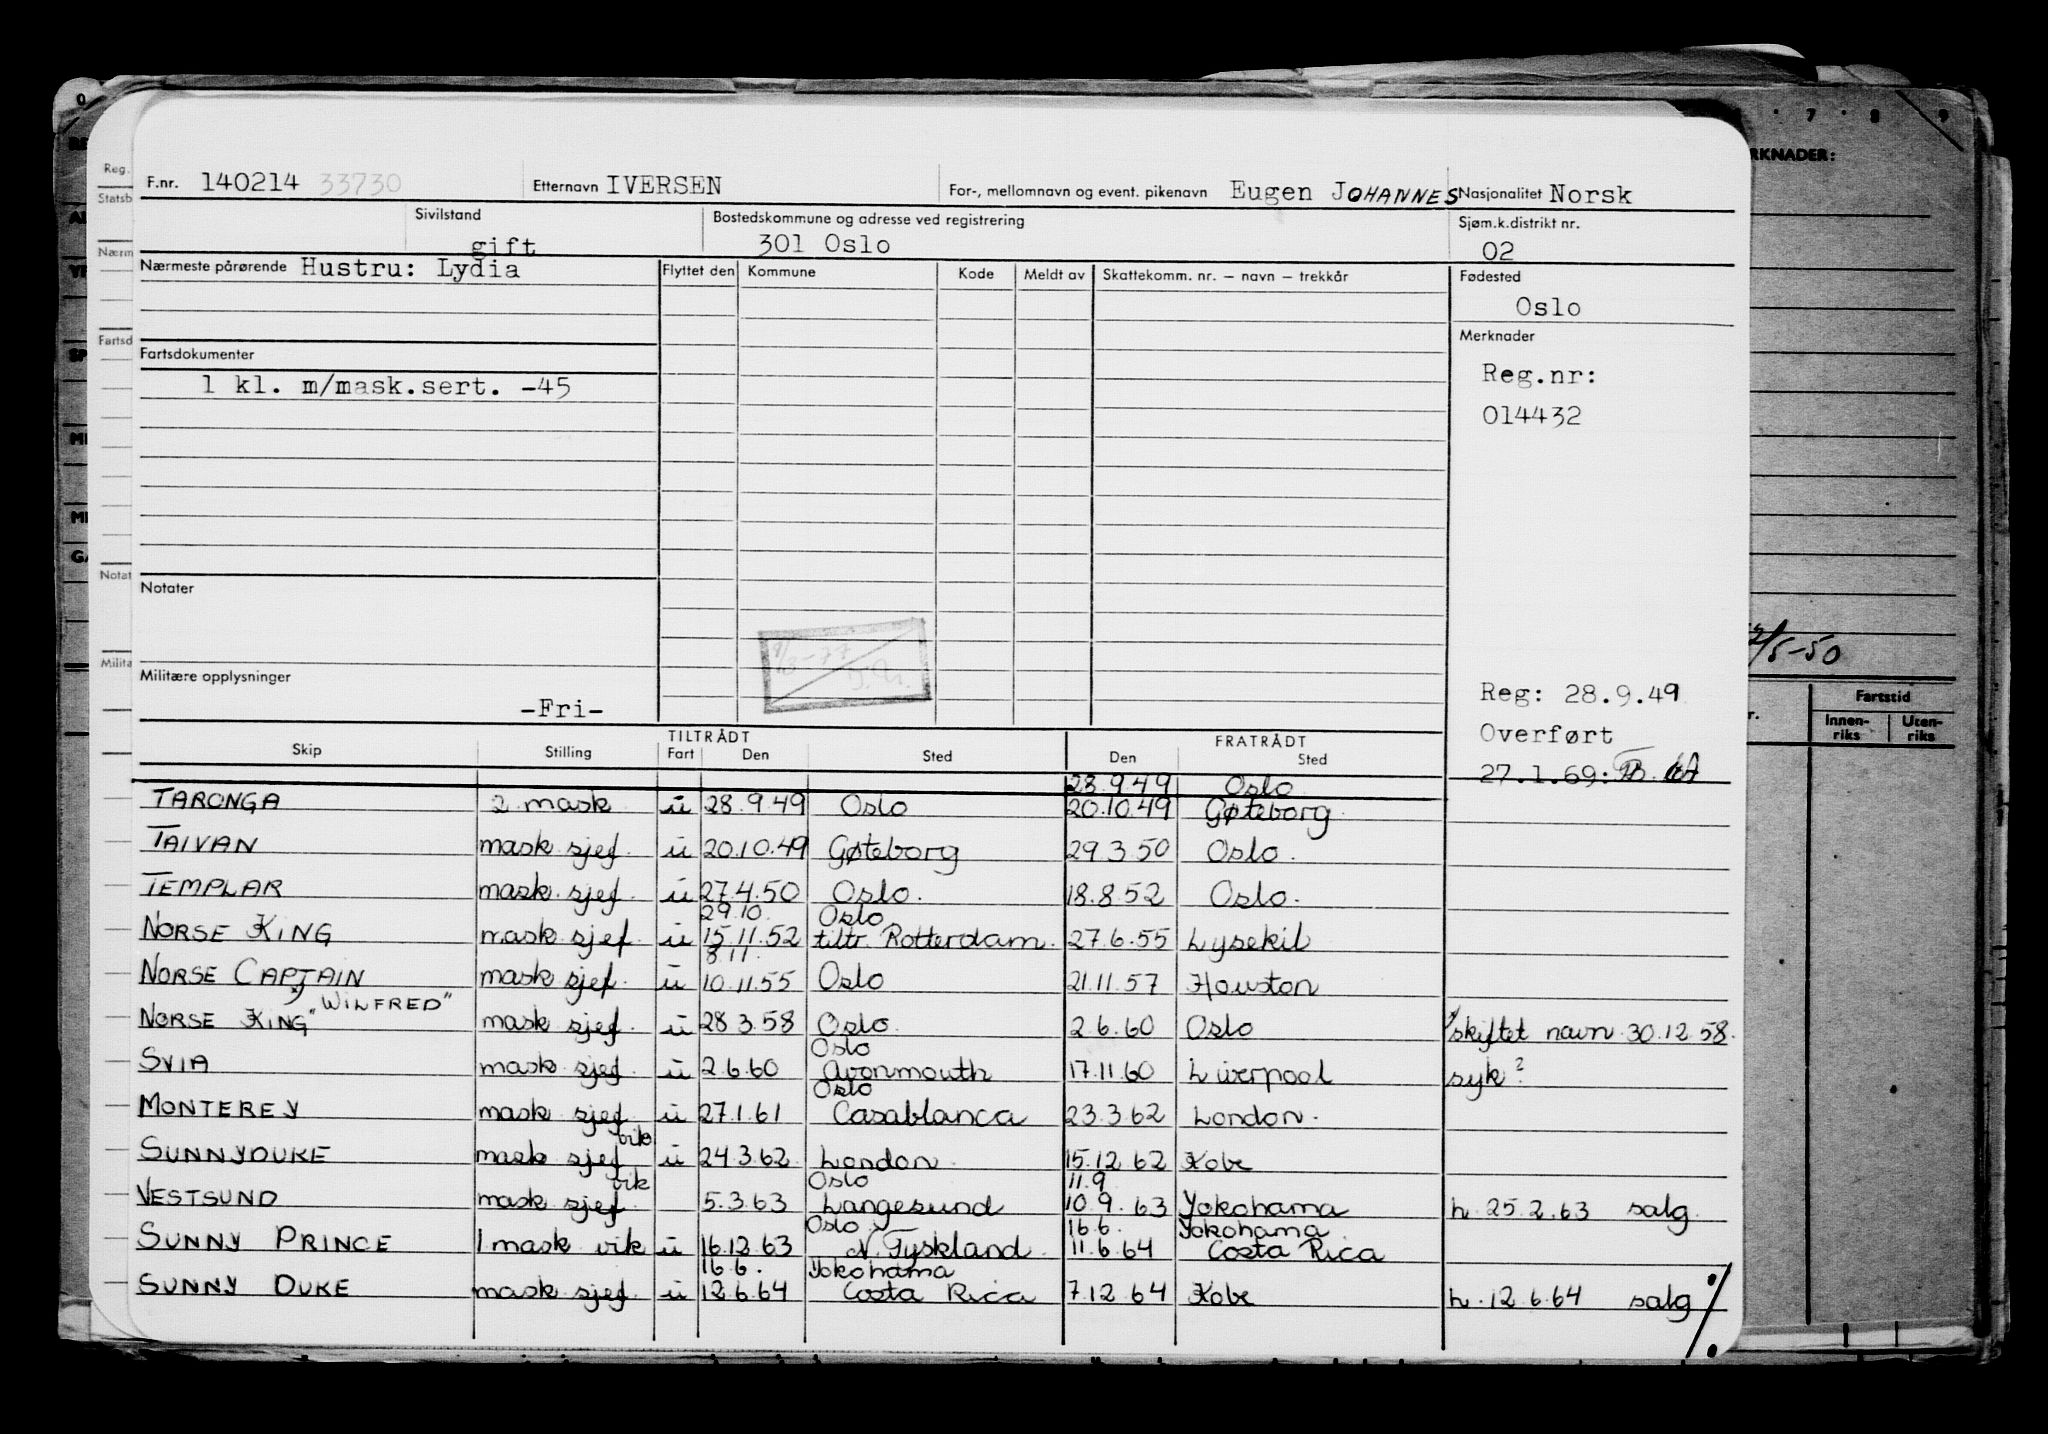 F.nr. 140214 33730 Etternavn IVERSEN For-, mellomnavn og event. pikenavn Eugen JOHANNES Nasjonalitet Norsk
Sivilstand gift Bostedskommune og adresse ved registrering 301 Oslo Sjøm.k.distrikt nr. 02
Nærmeste pårørende Hustru: Lydia Flyttet den Kommune Kode Meldt av Skattekomm. nr. – navn – trekkår Fødested
Oslo
Fartsdokumenter Merknader
1 kl. m/mask.sert. -45 Reg.nr:
014432
Notater
Militære opplysninger
-Fri-
Reg: 28.9.49
Overført
27.1.69:
TILTRÅDT FRATRÅDT
Skip Stilling Fart Den Sted Den Sted
23.9.49 Oslo
TARONGA 2 mask u 28.9.49 Oslo 20.10.49 Gøteborg
TAIVAN mask sjef. u 20.10.49 Gøteborg 29.3.50 Oslo.
TEMPLAR mask sjef. u 27.4.50 Oslo. 18.8.52 Oslo.
29.10. Oslo
NORSE KING mask sjef. u 15.11.52 tiltr. Rotterdam. 27.6.55 Lysekil
8.11.
NORSE CAPTAIN mask sjef. u 10.11.55 Oslo 21.11.57 Houston
"WILFRED"
NORSE KING" mask sjef. u 28.3.58 Oslo. 2.6.60 Oslo skiftet navn 30.12.58.
Oslo
SVIA mask sjef. u 2.6.60 Avonmouth 17.11.60 Liverpool syk?
Oslo
MONTEREY mask sjef u 27.1.61 Casablanca 23.3.62 London.
vik
SUNNYDUKE mask sjef u 24.3.62 London. 15.12.62 Kobe
vik Oslo 11.9
VESTSUND mask sjef. 5.3.63 Langesund 10.9.63 Yokohama h. 25.2.63 salg.
Oslo 16.6. Yokohama
SUNNY PRINCE 1 mask vik u 16.12.63 N. Tyskland. 11.6.64 Costa Rica
16.6. Yokohama
SUNNY DUKE mask sjef. u 12.6.64 Costa Rica 7.12.64 Kobe h. 12.6.64 salg
Reg.
Statsb
Nærm
Fartsd
Notat
Milita
7 8 9
RKNADER:
/5-50
Fartstid
Innen-
riks
Uten-
riks